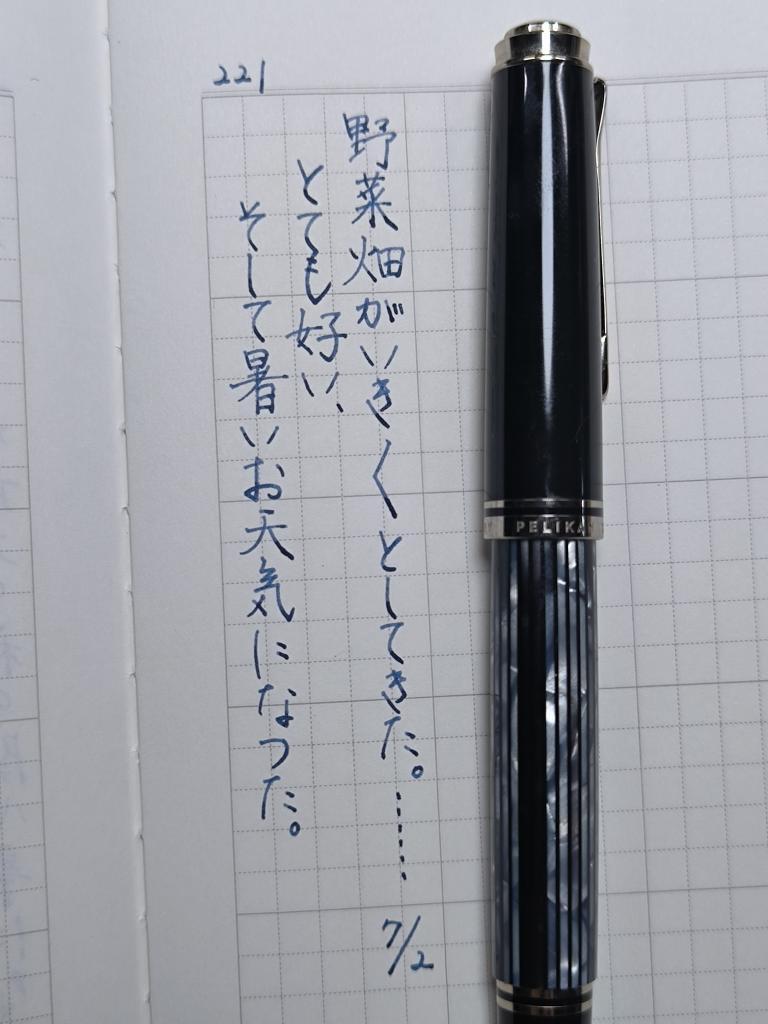 221
野菜畑がいきくとしてきた。……
とても好い、
そして暑いお天気になつた。
7/2
PELIKA